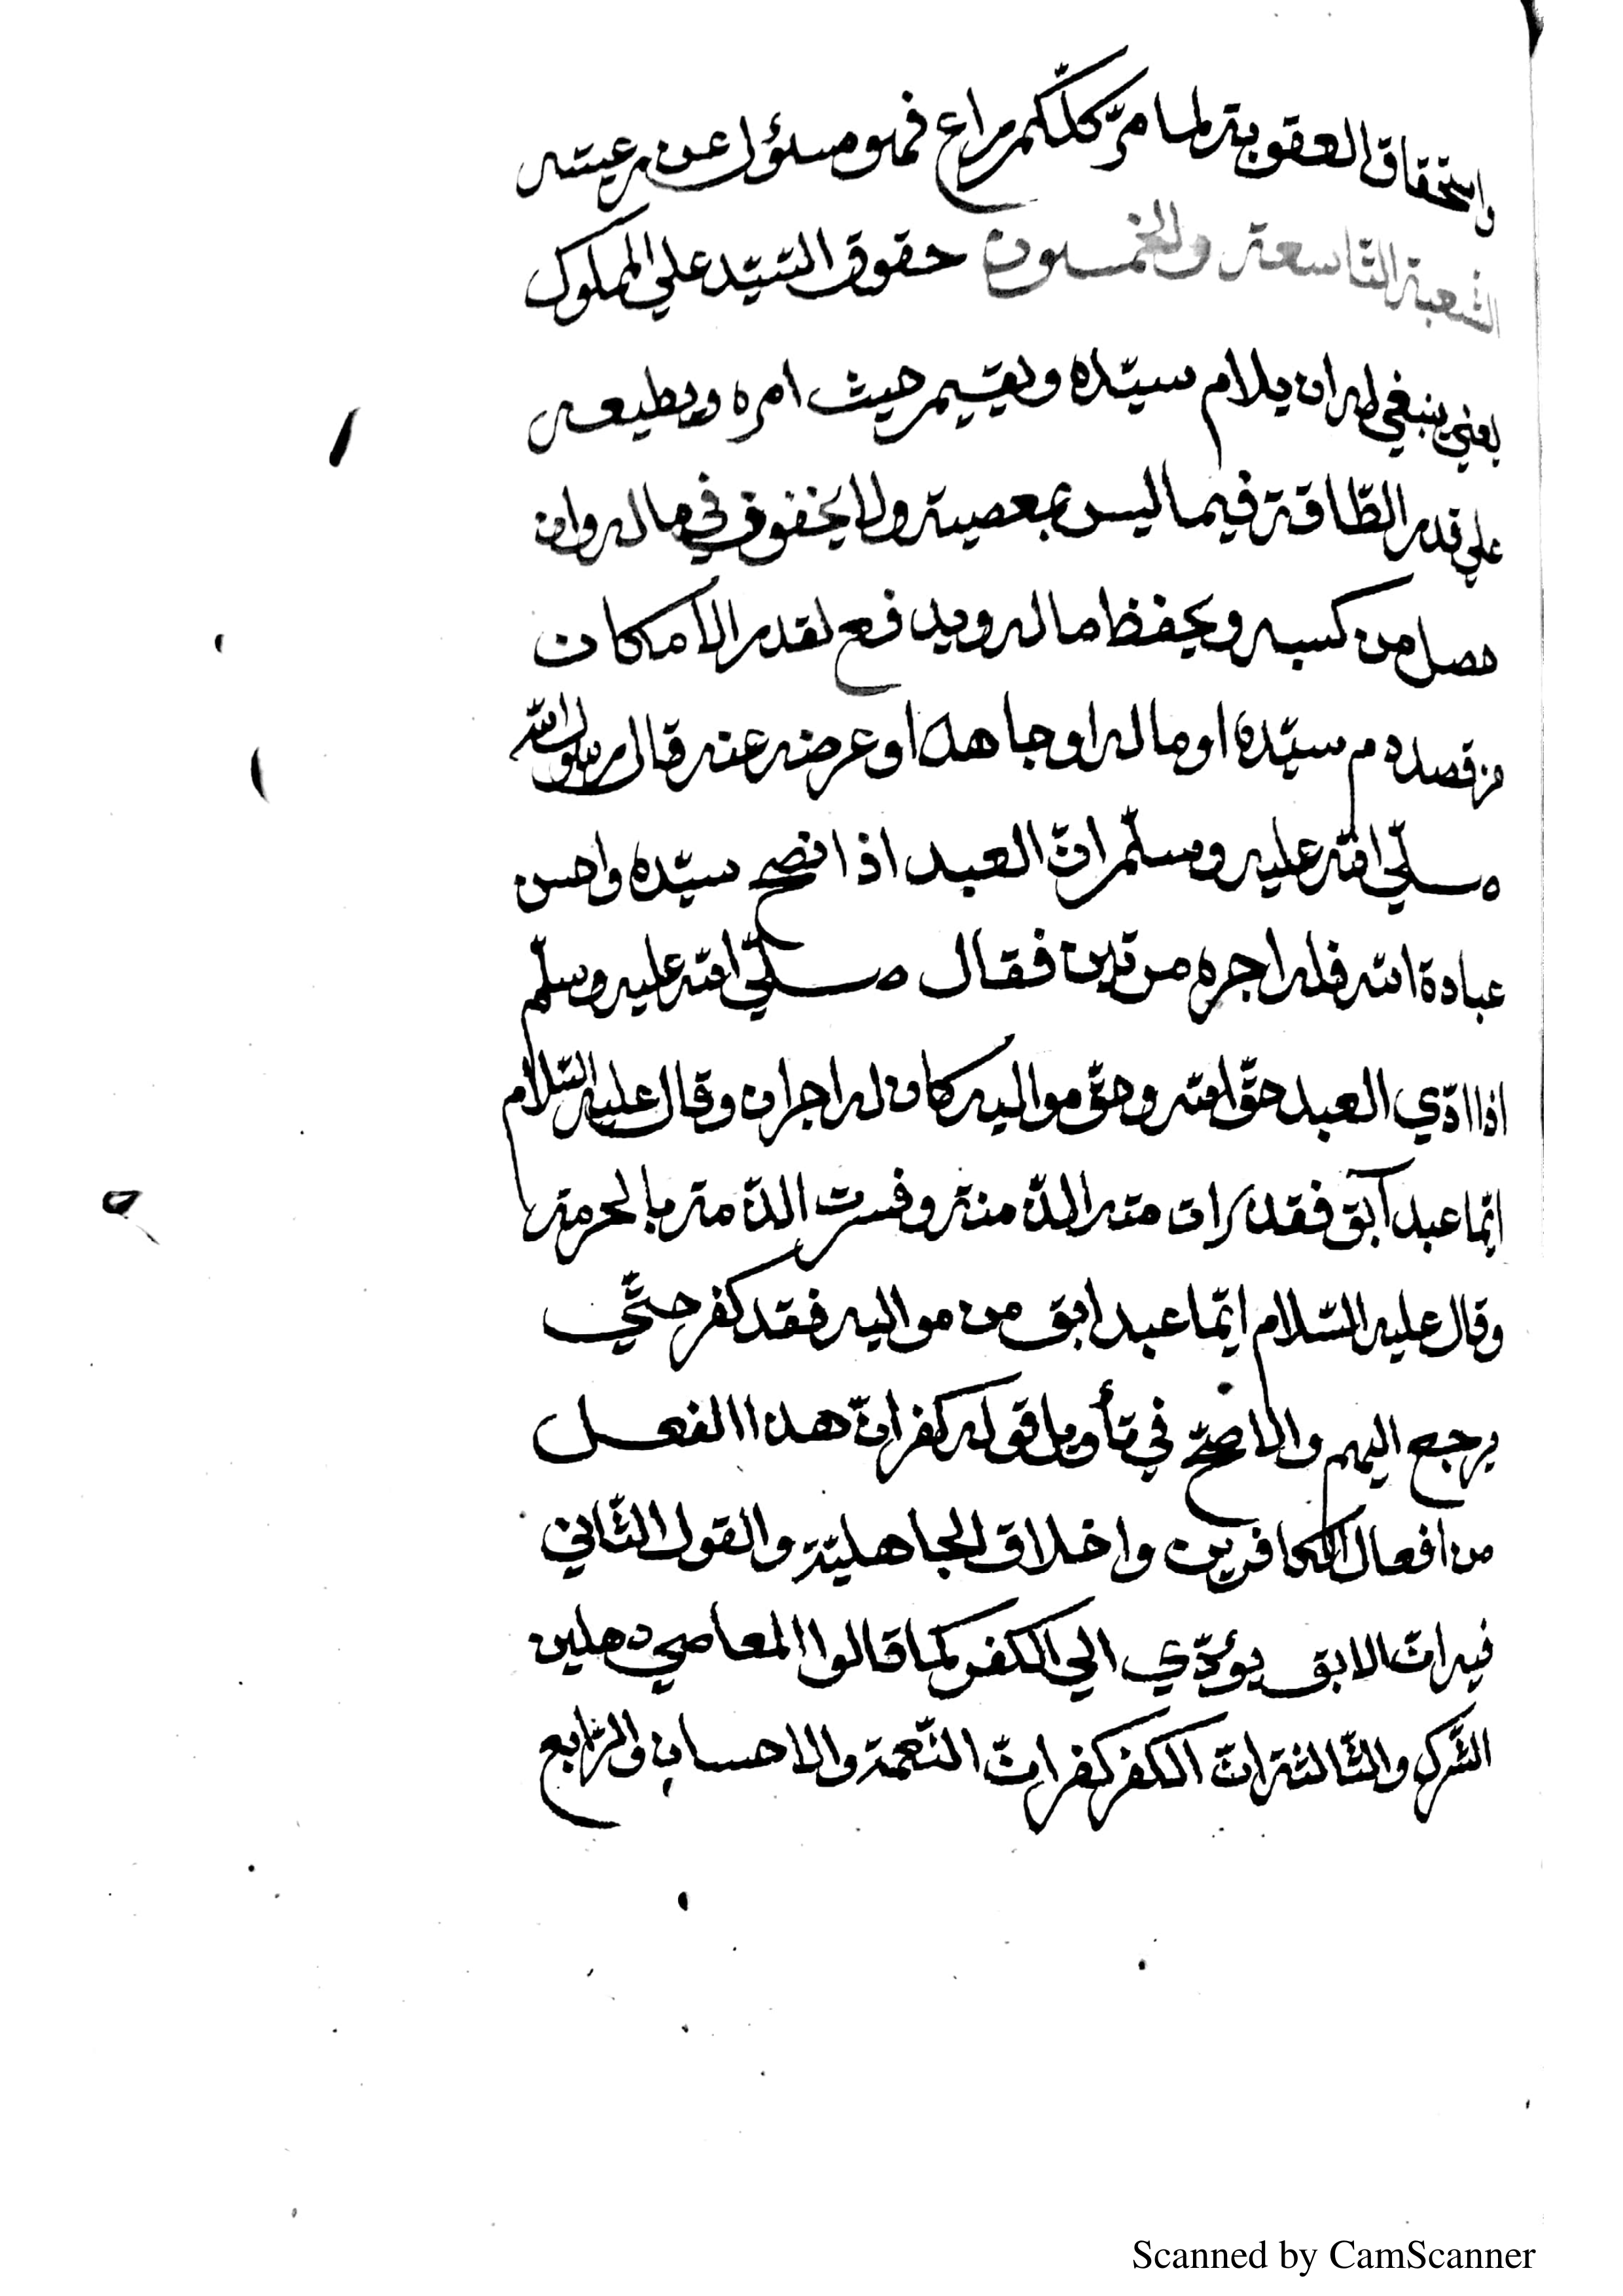 واستحقاق العقوبة لما مرّ كلّكم راع فهو مسئول عن رعيته
الشعبة التّاسعة والخمسون حقوق السّيّد علي المملوك
يعني ينبغي له ان يلازم سيّده ويقيم حيث امره ويطيعه
علي قدر الطّاقة فيما ليس بمعصية ولا يخون في ماله وان
حصل من كسبه ويحفظ ماله ويدفع لقدر الامكان
من قصد دم سيّده او ماله او جاهه او عرضه عنه قال رسول الله
صلّي الله عليه وسلّم انّ العبد اذا نصح سيّده واحسن
عبادة الله فله اجره مرتين فقال صلّي الله عليه وسلّم
اذا ادّي العبد حقّ الله وحقّ مواليه كان له اجران وقال عليه السّلام
ايّما عبد آبق فقد برات منه الذّمة وفسرت الذّمة بالحرمة
وقال عليه السّلام ايّما عبد ابق من مواليه فقد كفر حتّي
يرجع اليهم والاصحّ في تأويل قوله كفر انّ هذا الفعل
من افعال الكافرين واخلاق الجاهليّة والقول الثّاني
فيه انّ الابق يؤدّي الي الكفر كما قالوا المعاصي دهلين
الشّرك والثّالثة انّ الكفر كفران النّعمة والاحسان والرّابع
Scanned by CamScanner